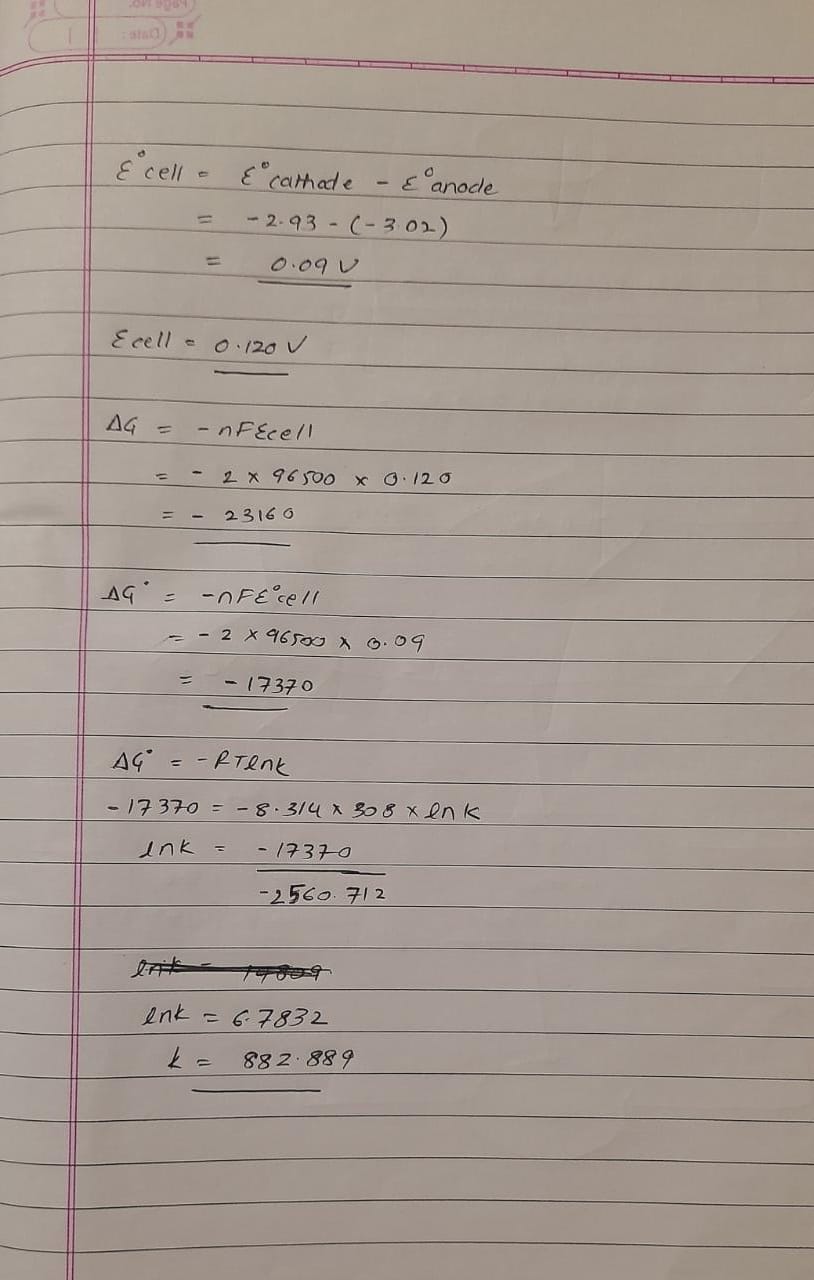 Page No.
Date :
Ɛ°cell = Ɛ°cathode - Ɛ°anode
= -2.93 - (-3.02)
= 0.09 V
Ɛcell = 0.120 V
ΔG = -nFƐcell
= - 2 x 96500 x 0.120
= - 23160
ΔG° = -nFƐ°cell
= - 2 x 96500 x 0.09
= -17370
ΔG° = -RTlnk
-17370 = -8.314 x 308 x lnk
lnk = -17370
-2560.712
lnk = 6.7832
k = 882.889